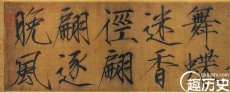 舞蝶
迷香
徑翩
翩逐
晚風
趣历史